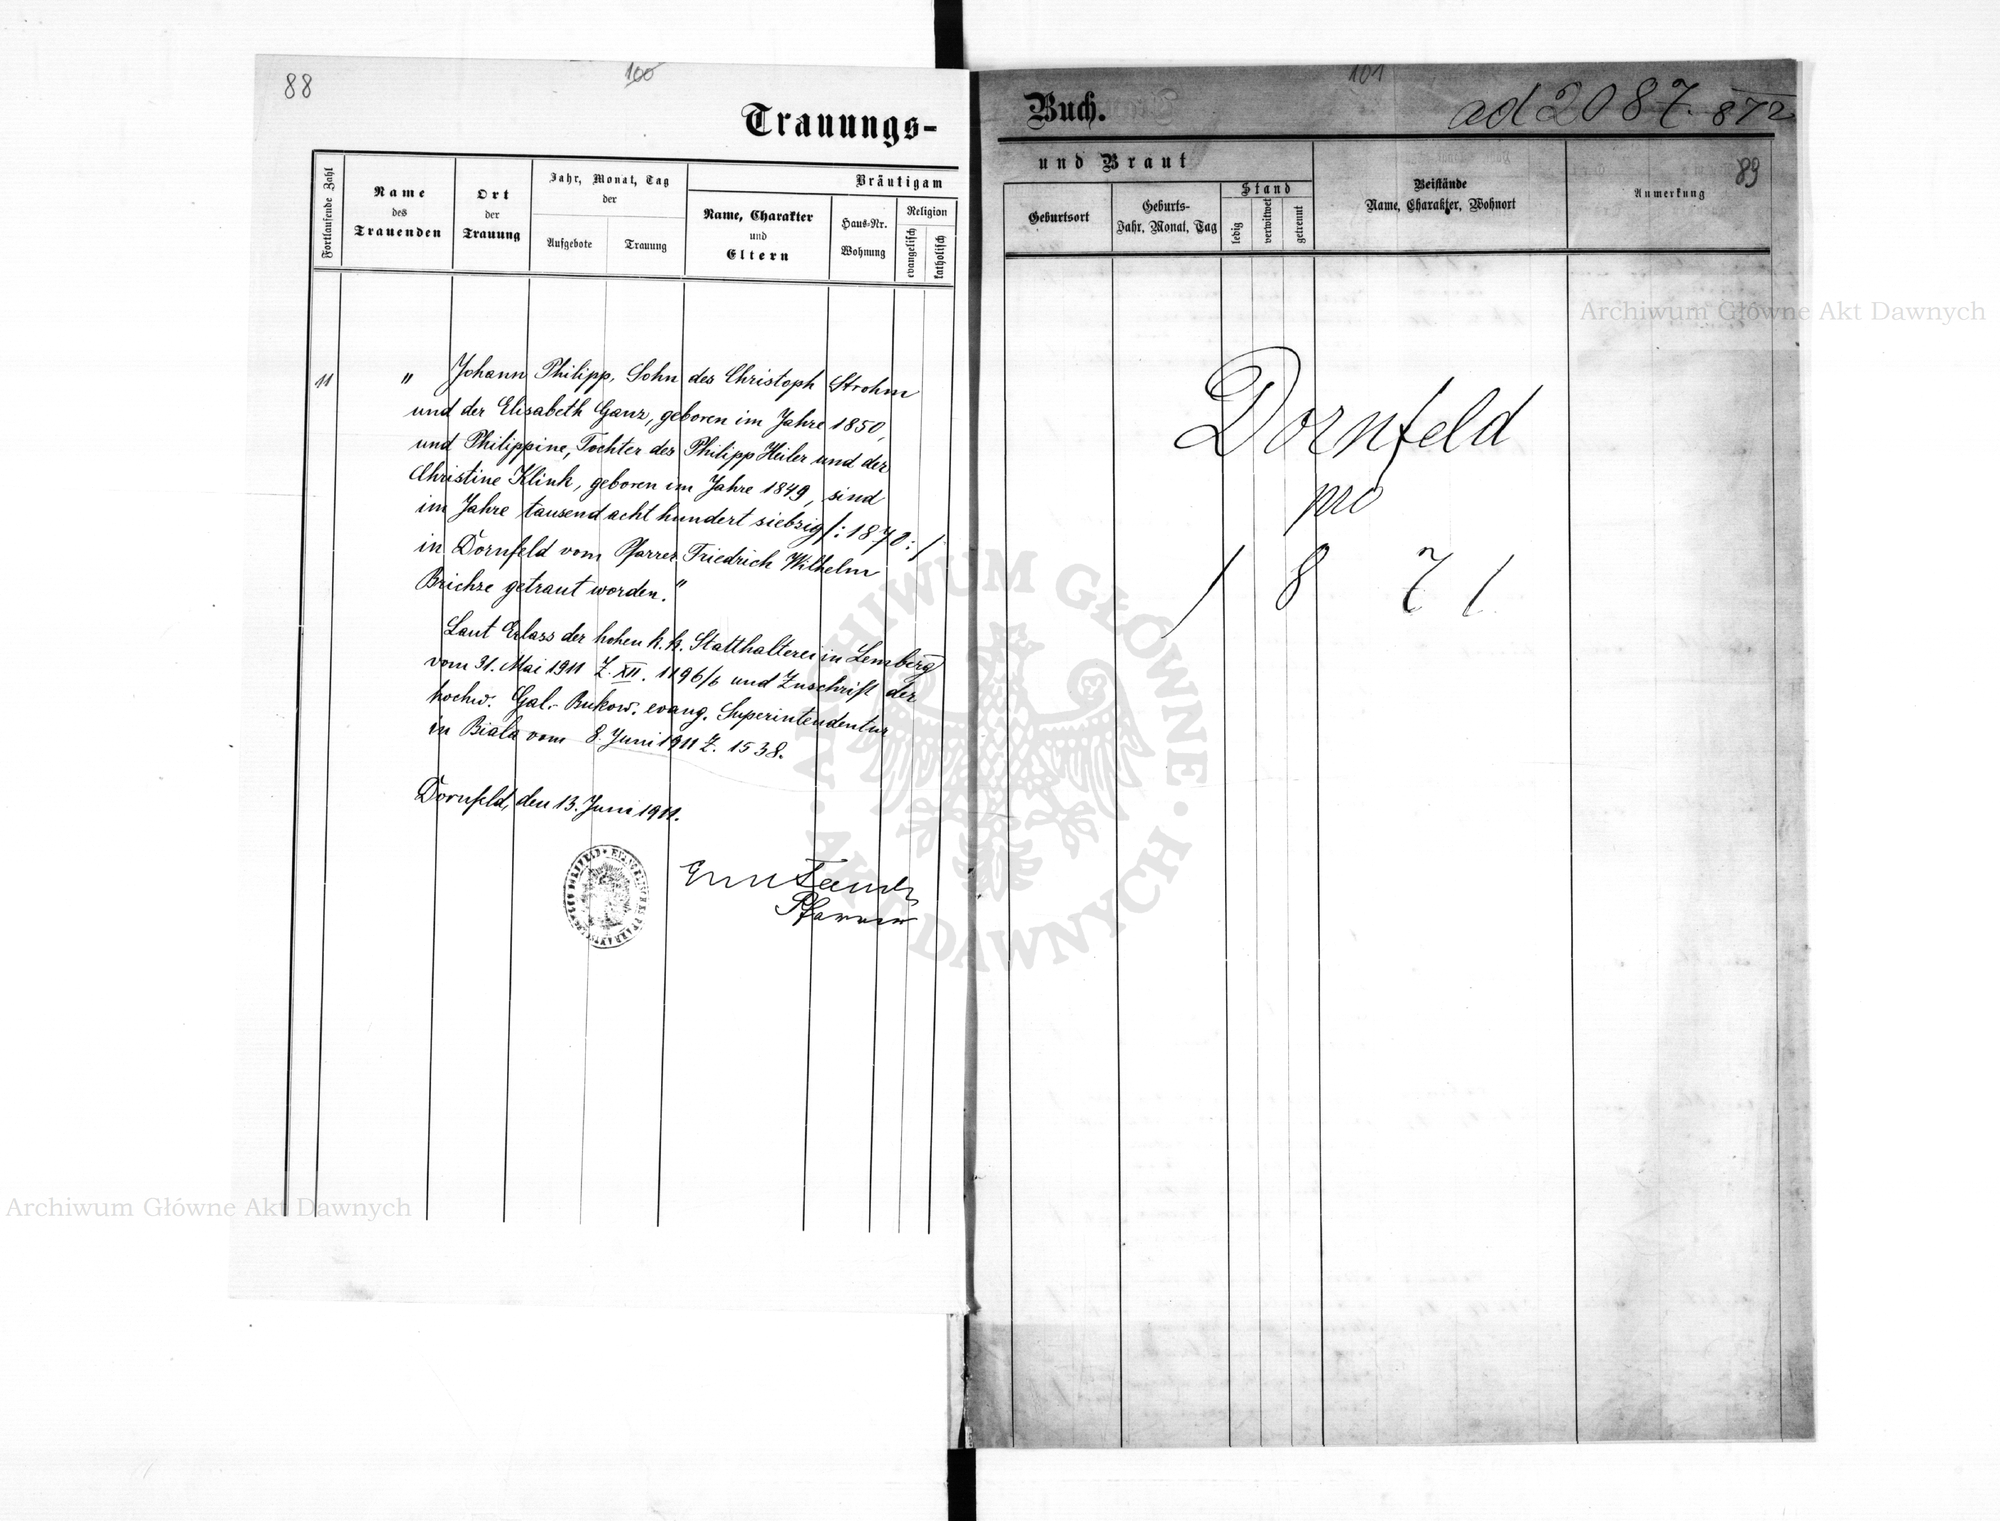 88
100
Trauungs-
Fortlaufende Zahl
Name
des
Trauenden
Ort
der
Trauung
Jahr, Monat, Tag
der
Aufgebote
Trauung
Bräutigam
Name, Charakter
und
Eltern
Haus-Nr.
Wohnung
Religion
evangelisch
katholisch
11
" Johann Philipp, Sohn des Christoph Strohm
und der Elisabeth Ganz, geboren im Jahre 1850,
und Philippine, Tochter des Philipp Heiler und der
Christine Klink, geboren im Jahre 1849, sind
im Jahre tausend acht hundert siebzig /:1870:/
in Dornfeld vom Pfarrer Friedrich Wilhelm
Brichze getraut worden."
Laut Erlass der hohen k. k. Statthalterei in Lemberg
vom 31. Mai 1911 Z. XII. 1196/6 und Zuschrift der
hochw. Gal.- Bukow. evang. Superintendentur
in Biala vom 8. Juni 1911 Z. 1538.
Dornfeld, den 13. Juni 1911.
Pfarrer
101
Buch.
ad 2087. 872
89
und Braut
Geburtsort
Geburts-
Jahr, Monat, Tag
Stand
ledig
verwitwet
getrennt
Beistände
Name, Charakter, Wohnort
Anmerkung
Dornfeld
pro
1871
Archiwum Główne Akt Dawnych
ARCHIWUM GŁÓWNE · AKT DAWNYCH ·
Archiwum Główne Akt Dawnych